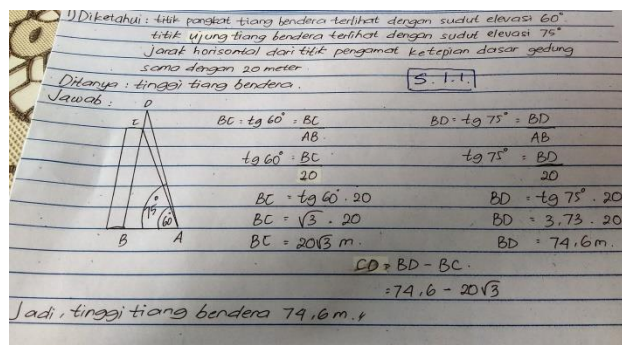 1) Diketahui : titik pangkat tiang bendera terlihat dengan sudut elevasi 60°
titik ujung tiang bendera terlihat dengan sudut elevasi 75°
jarak horisontal dari titik pengamat ketepian dasar gedung
sama dengan 20 meter
Ditanya : tinggi tiang bendera.
S. 1.1.
Jawab :
D
C
75°
60°
B
A
BC = tg 60° = BC
AB
tg 60° = BC
20
BC = tg 60° . 20
BC = √3 . 20
BC = 20√3 m.
BD = tg 75° = BD
AB
tg 75° = BD
20
BD = tg 75° . 20
BD = 3,73 . 20
BD = 74,6 m.
CD = BD - BC.
= 74,6 - 20√3
Jadi, tinggi tiang bendera 74,6 m.